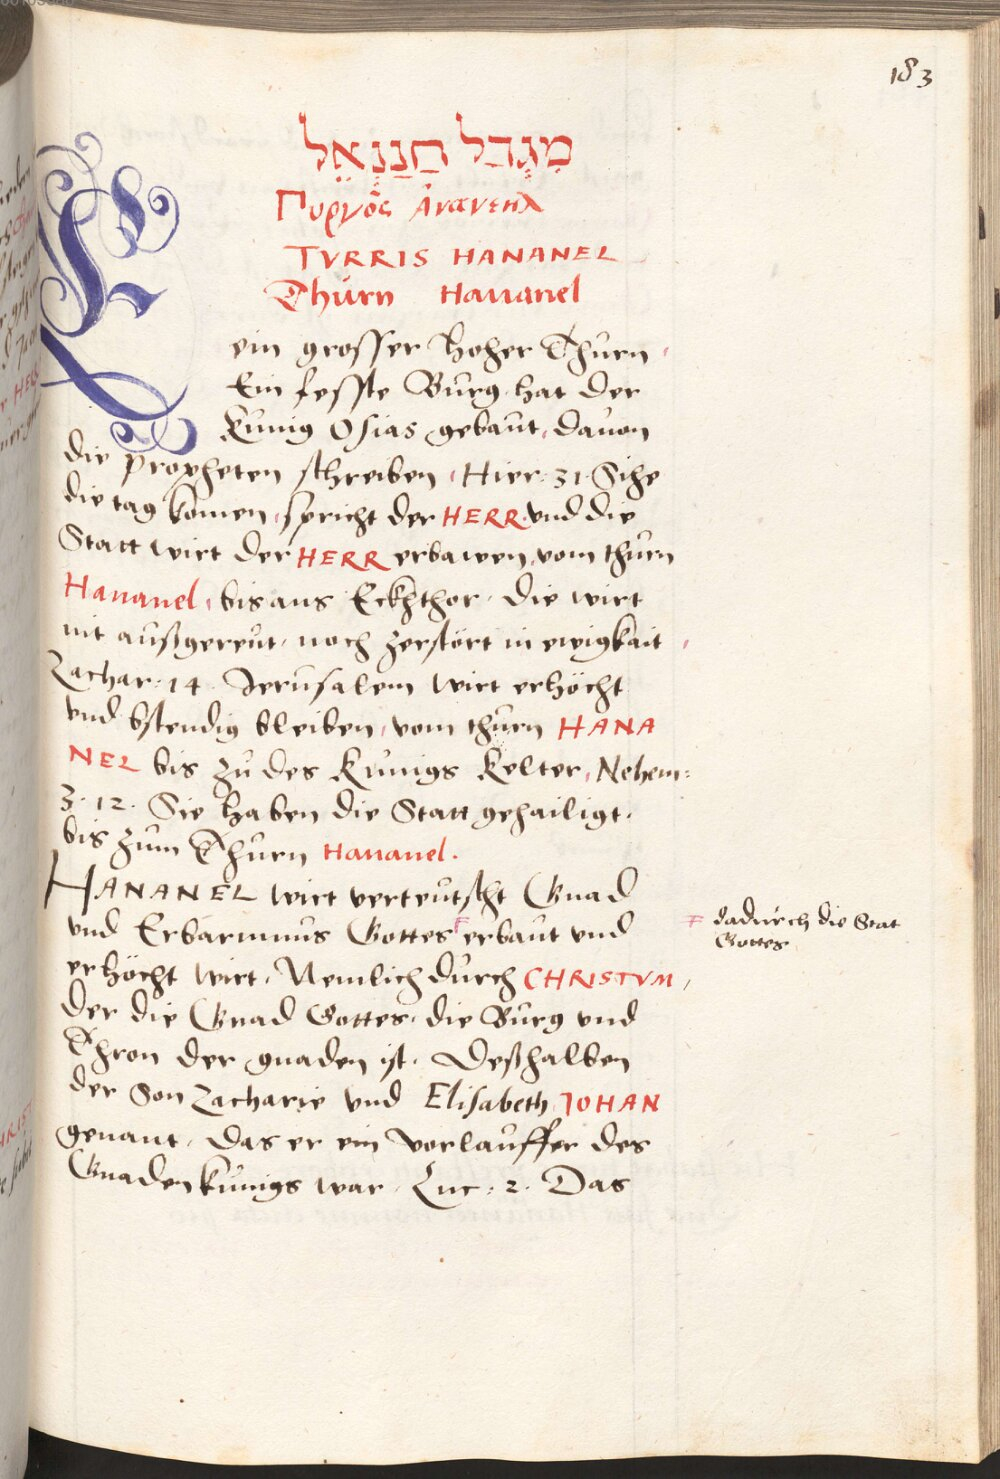 183
מִגְדַל חֲנַנְאֵל
Πυργὸς Ἀνανεηλ
TVRRIS HANANEL
Thurn Hananel
Es
ein grosser hoher Thurn
Ein fesste Burg, hat der
Kunig Osias gebaut, dauon
die Propheten schreiben, Hier: 31. Sihe
die tag komen, spricht der HERR, vnd die
Statt wirt der HERR erbawen, vom thurn
Hananel, bis ans Eckhthor. Die wirt
nit außgereut, noch zerstört in ewigkait
Zachar: 14. Jerusalem wirt erhöcht
vnd bstendig bleiben, vom thurn HANA
NEL bis zu des Kunigs Kelter, Nehem:
3. 12. Sie haben die Statt gehailigt.
bis zum Thurn Hananel.
HANANEL wirt verteutscht Gnad
vnd Erbarmnus Gottes F erbaut vnd
erhöcht wirt. Nemlich durch CHRISTVM,
der die Gnad Gottes, die Burg vnd
Thron der gnaden ist. Deßhalben
der Son Zacharie vnd Elisabeth JOHAN
genant, Das er ein Vorlauffer des
Gnadenkunigs war. Luc: 2. Das
F dadurch die Stat
Gottes